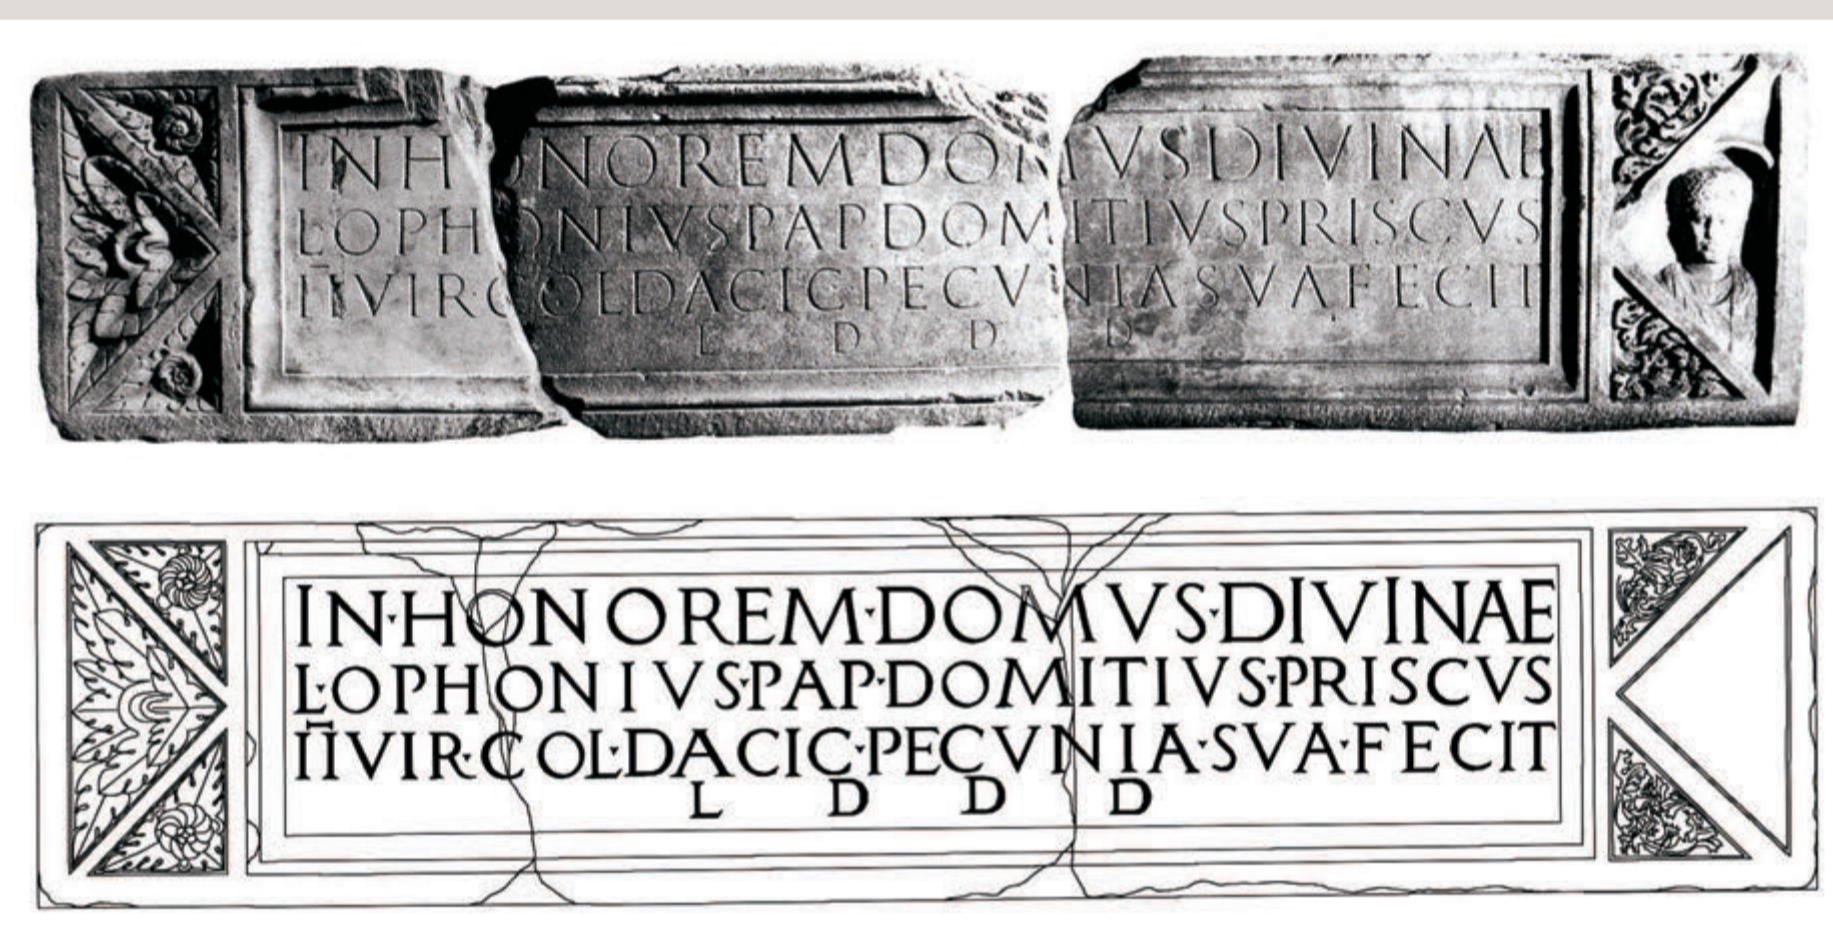 INHONOREMDOMVSDIVINAE
LOPHONIVSPAPDOMITIVSPRISCVS
IIVIR·COLDACICPECVNIASVAFECIT
L D D D
IN·HONOREM·DOMVS·DIVINAE
L·OPHONIVS·PAP·DOMITIVS·PRISCVS
IIVIR·COL·DACIC·PECVNIA·SVA·FECIT
L D D D